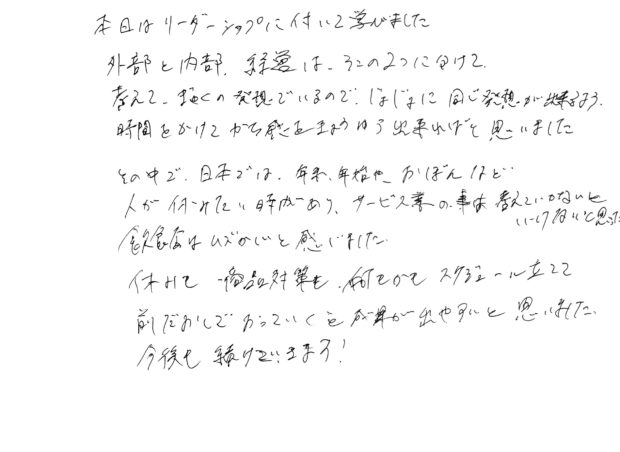 本日はリーダーシップに付いて学びました
外部と内部、経営は、この2つに分けて、
考えて、まなくの発想でいるので、じょじょに同じ発想が出来るよう、
時間をかけて 出来ればと思いました
その中で、日本では、年末、年始や、おぼんなど…
人が 時期があり、サービス業の事は考えていかないと
いけないと思った
飲食店はムズかしいと感じました。
休みて 商品対策も、何をかをスケジュール立てて
前だおしでおっていくと成果が出やすいと思いました。
今後も続けていきます!